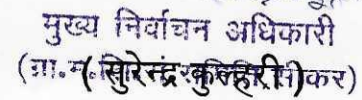 मुख्य निर्वाचन अधिकारी
(ग्रा.म. (सुरेन्द्र कुल्हरी) सीकर)